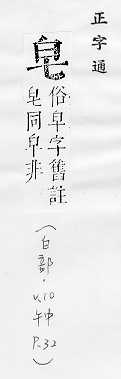 正字通
皂
俗皁字舊註
皂同皁非
(白部·
V.10
午中
P.32)